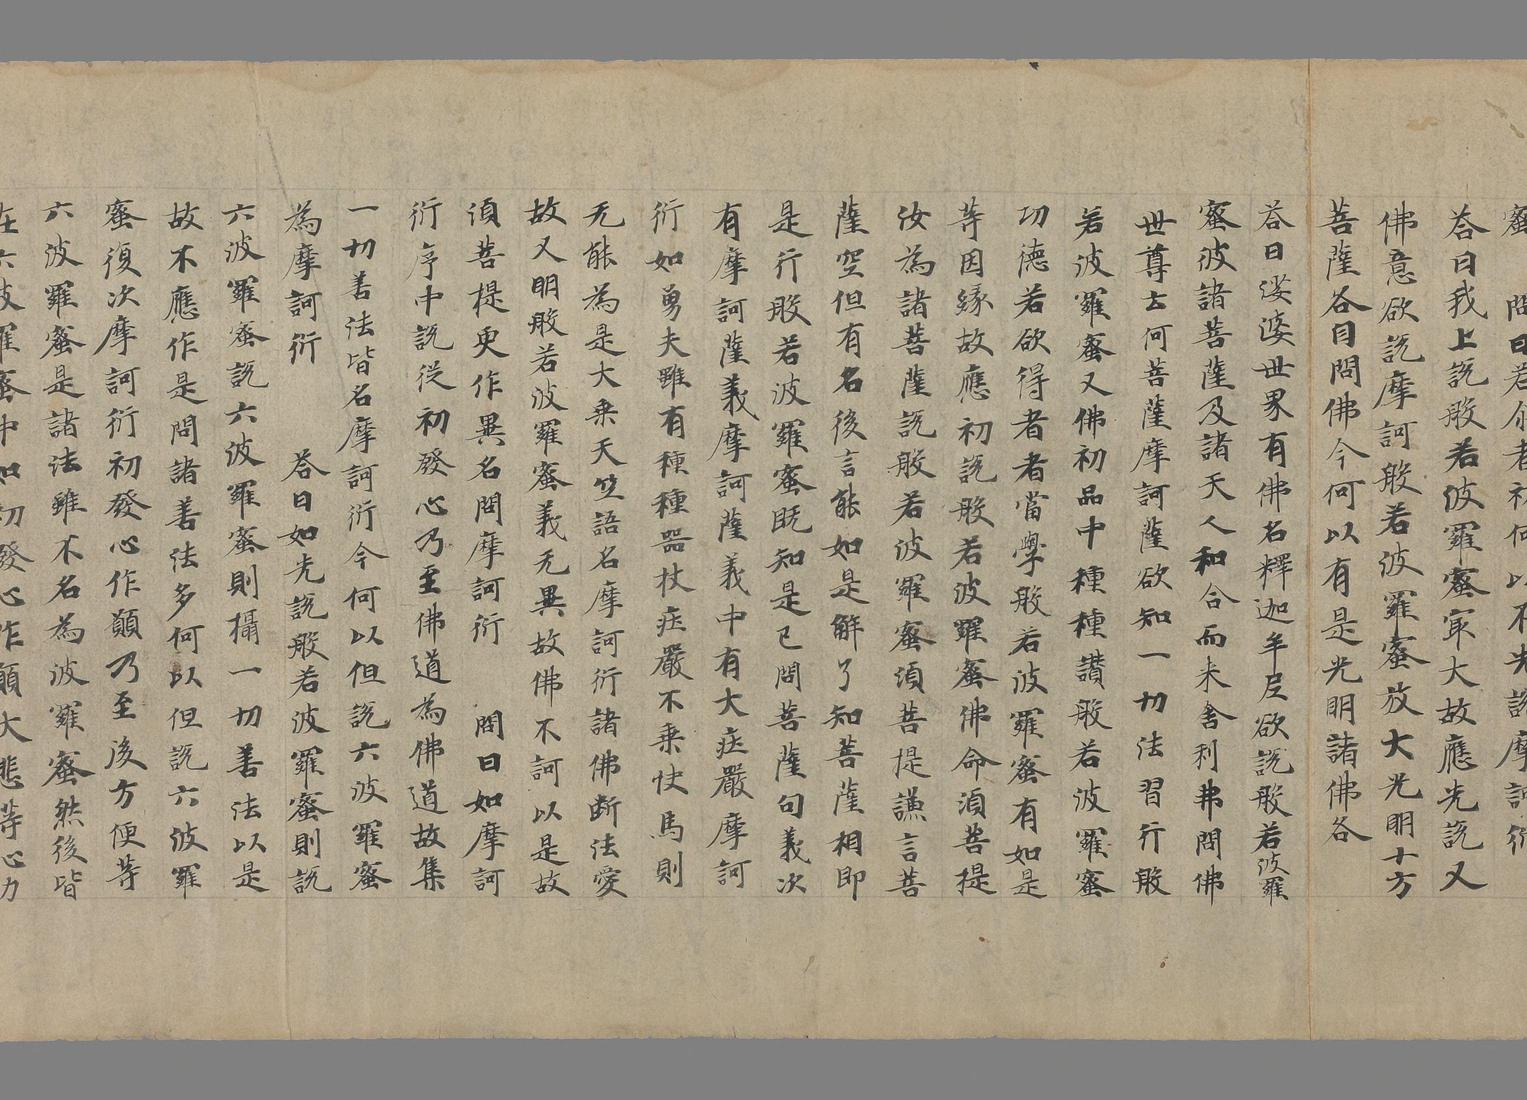 蜜　問曰若尒者初何以不先說摩訶衍
荅曰我上說般若波羅蜜㝡大故應先說又
佛意欲說摩訶般若波羅蜜放大光明十方
菩薩各自問佛今何以有是光明諸佛各
荅曰娑婆世界有佛名釋迦牟尼欲說般若波羅
蜜彼諸菩薩及諸天人和合而来舍利弗問佛
世尊云何菩薩摩訶薩欲知一切法習行般
若波羅蜜又佛初品中種種讚般若波羅蜜
功德若欲得者者當學般若波羅蜜有如是
等因緣故應初說般若波羅蜜佛命湏菩提
汝為諸菩薩說般若波羅蜜湏菩提謙言菩
薩空但有名後言能如是解了知菩薩相即
是行般若波羅蜜既知是已問菩薩句義次
有摩訶薩義摩訶薩義中有大莊嚴摩訶
衍如勇夫雖有種種器杖莊嚴不乗快馬則
无能為是大乗天竺語名摩訶衍諸佛断法愛
故又明般若波羅蜜義无異故佛不訶以是故
湏菩提更作異名問摩訶衍　問曰如摩訶
衍序中說從初發心乃至佛道為佛道故集
一切善法皆名摩訶衍今何以但說六波羅蜜
為摩訶衍　荅曰如先說般若波羅蜜則說
六波羅蜜說六波羅蜜則攝一切善法以是
故不應作是問諸善法多何以但說六波羅
蜜復次摩訶衍初發心作願乃至後方便等
六波羅蜜是諸法雖不名為波羅蜜然後皆
在六波羅蜜中如初發心作願大悲等心力